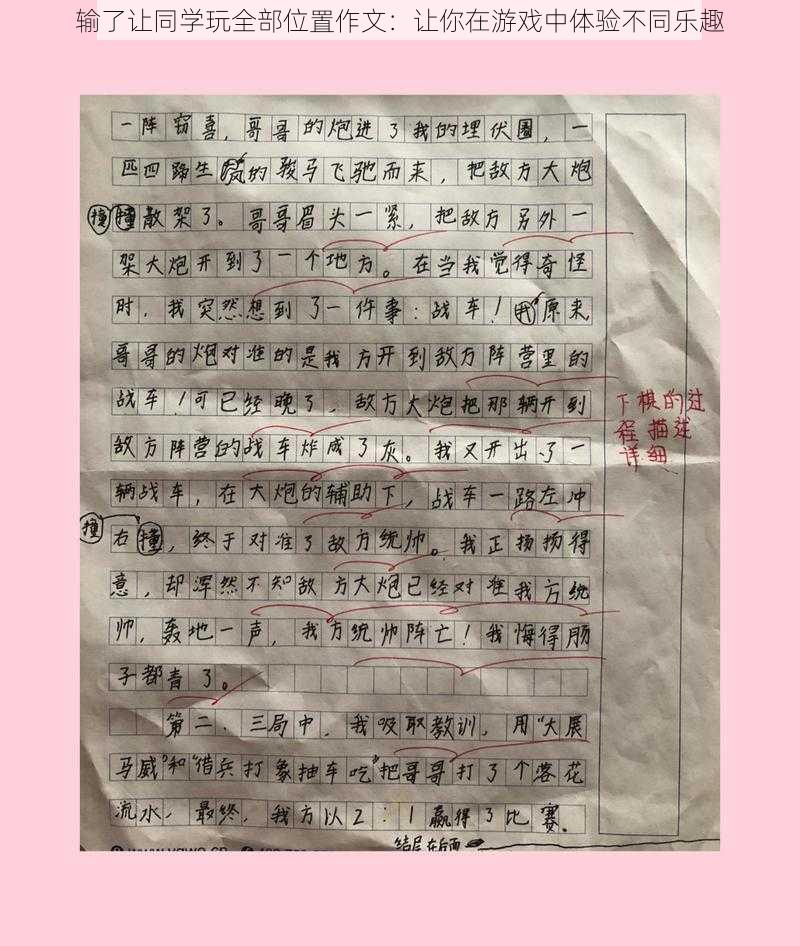 输了让同学玩全部位置作文：让你在游戏中体验不同乐趣
一阵窃喜，哥哥的炮进了我的埋伏圈，一
匹四蹄生风的骏马飞驰而来，把敌方大炮
撞 撞散架了。哥哥眉头一紧，把敌方另外一
架大炮开到了一个地方。在当我觉得奇怪
时，我突然想到了一件事：战车！我原来
哥哥的炮对准的是我方开到敌方阵营里的
战车！可已经晚了，敌方大炮把那辆开到
下棋的过
程描述
详细
敌方阵营的战车炸成了灰。我又开出了一
辆战车，在大炮的辅助下，战车一路左冲
撞 右撞，终于对准了敌方统帅。我正扬扬得
意，却浑然不知敌方大炮已经对准我方统
帅，轰地一声，我方统帅阵亡！我悔得肠
子都青了。
第二、三局中，我吸取教训，用“大展
马威”和“借兵打象抽车吃”把哥哥打了个落花
流水，最终，我方以2：1赢得了比赛。
结尾在后面